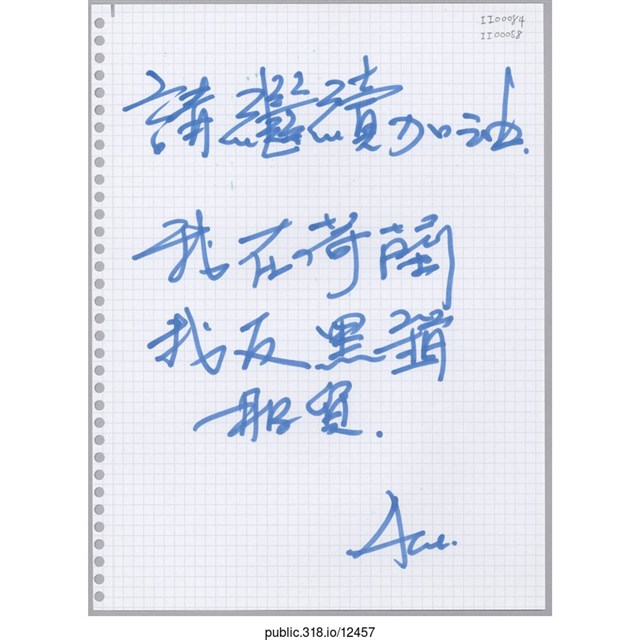 II00084
II00058
請繼續加油.
我在荷蘭
我反黑箱
服貿.
public.318.io/12457